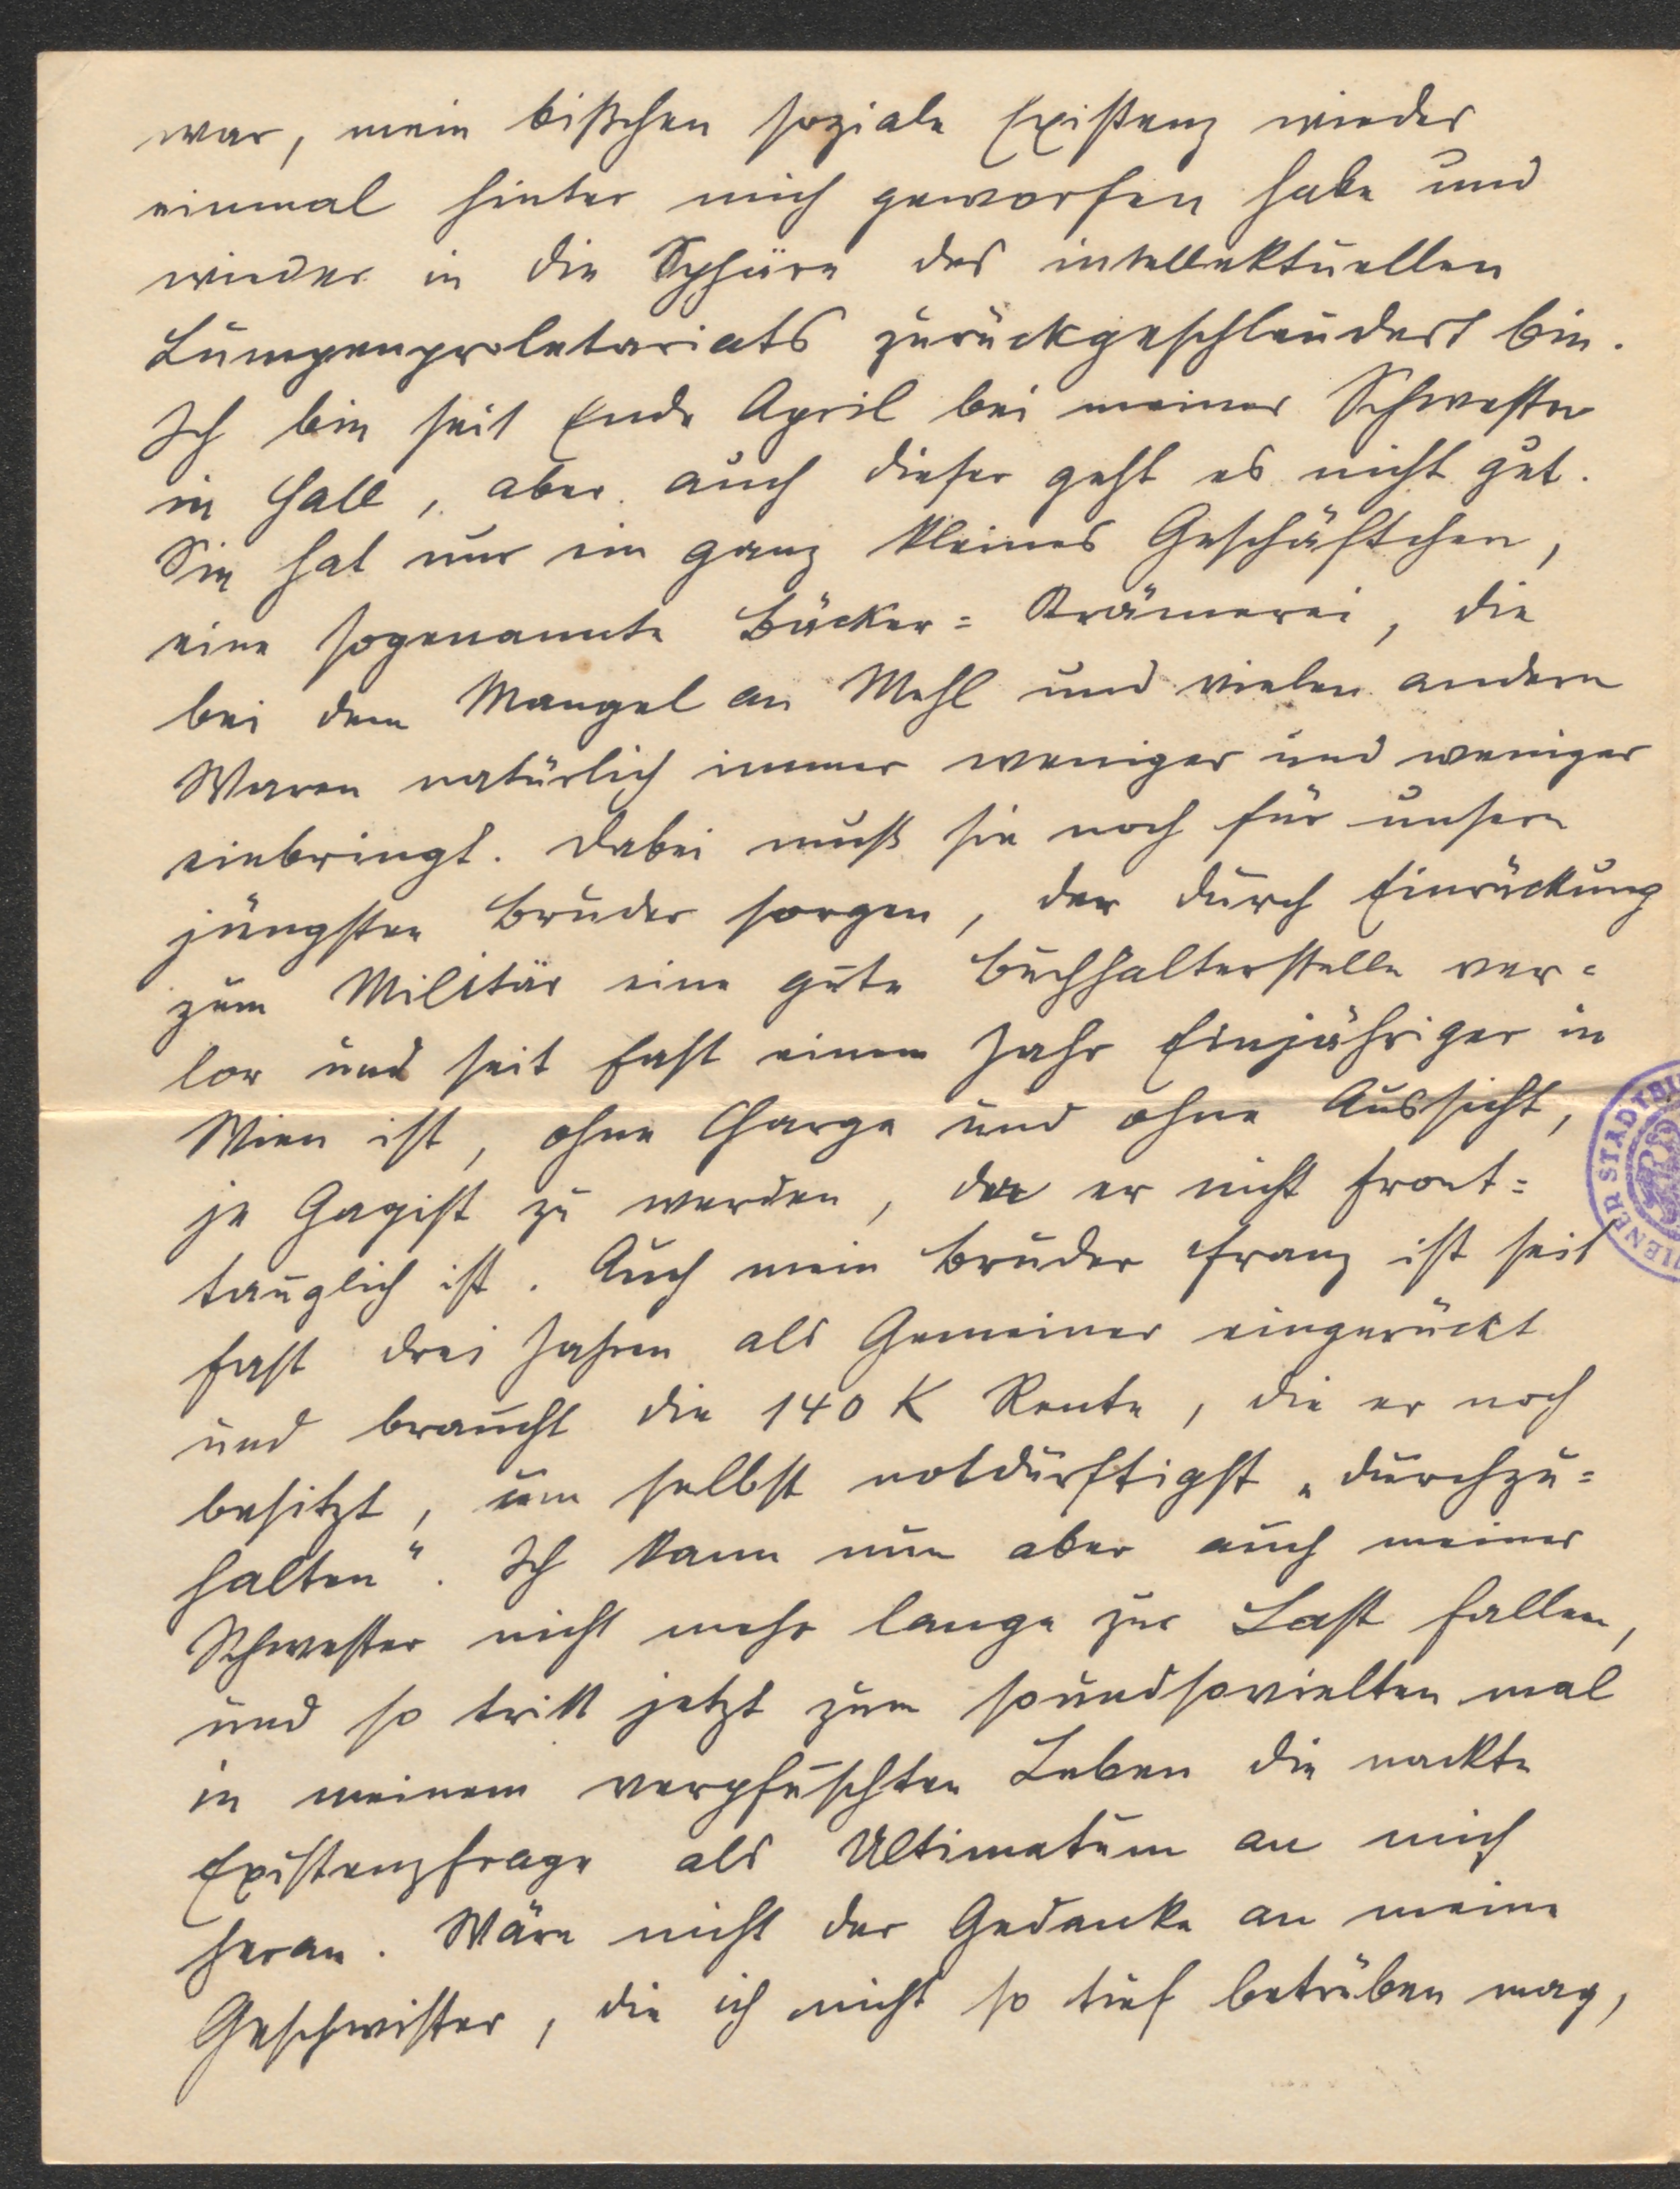 war, mein bißchen soziale Existenz wieder
einmal hinter mich geworfen habe und
wieder in die Sphäre des intellektuellen
Lumpenproletariats zurückgeschleudert bin.
Ich bin seit Ende April bei meiner Schwester
in Hall, aber auch dieser geht es nicht gut.
Sie hat nur ein ganz kleines Geschäftchen,
eine sogenannte Bäcker=Krämerei, die
bei dem Mangel an Mehl und vielen andern
Waren natürlich immer weniger und weniger
einbringt. Dabei muß sie noch für unsern
jüngsten Bruder sorgen, der durch Einrückung
zum Militär eine gute Buchhalterstelle ver=
lor und seit fast einem Jahr Einjähriger in
Wien ist, ohne Charge und ohne Aussicht,
je Gagist zu werden, da er nicht front=
tauglich ist. Auch mein Bruder Franz ist seit
fast drei Jahren als Gemeiner eingerückt
und braucht die 140 K Rente, die er noch
besitzt, um selbst notdürftigst „durchzu=
halten“. Ich kann nun aber auch meiner
Schwester nicht mehr lange zur Last fallen,
und so tritt jetzt zum soundsovielten mal
in meinem verpfuschten Leben die nackte
Existenzfrage als Ultimatum an mich
heran. Wäre nicht der Gedanke an meine
Geschwister, die ich nicht so tief betrüben mag,